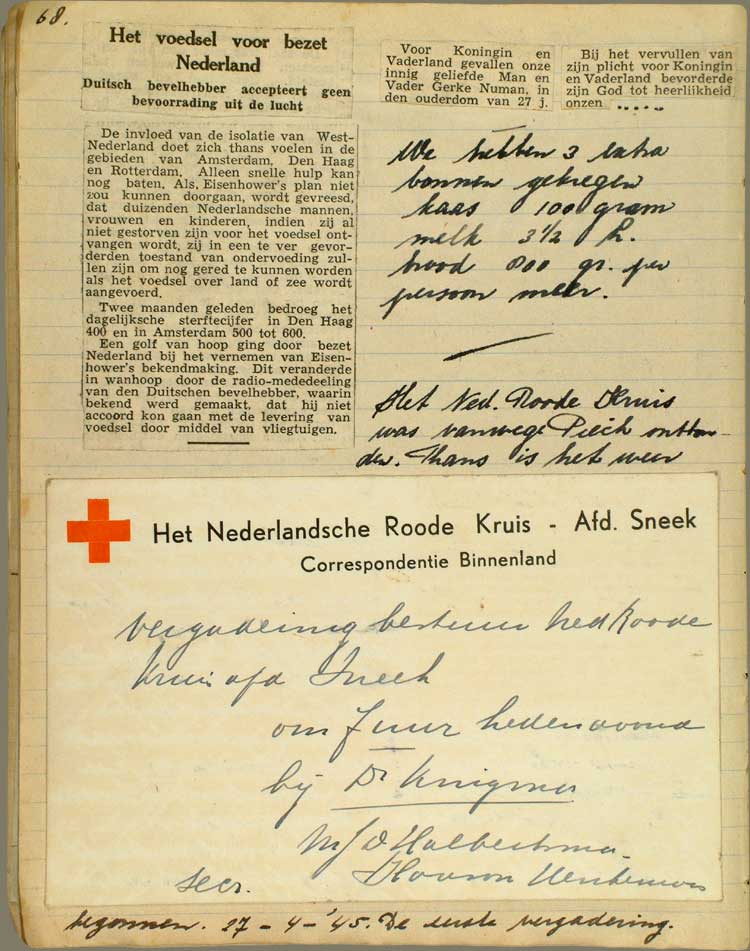 68.
Het voedsel voor bezet
Nederland
Duitsch bevelhebber accepteert geen
bevoorrading uit de lucht
De invloed van de isolatie van West-
Nederland doet zich thans voelen in de
gebieden van Amsterdam, Den Haag
en Rotterdam. Alleen snelle hulp kan
nog baten. Als Eisenhower's plan niet
zou kunnen doorgaan, wordt gevreesd,
dat duizenden Nederlandsche mannen,
vrouwen en kinderen, indien zij al
niet gestorven zijn voor het voedsel ont-
vangen wordt, zij in een te ver gevor-
derden toestand van ondervoeding zul-
len zijn om nog gered te kunnen worden
als het voedsel over land of zee wordt
aangevoerd.
Twee maanden geleden bedroeg het
dagelijksche sterftecijfer in Den Haag
400 en in Amsterdam 500 tot 600.
Een golf van hoop ging door bezet
Nederland bij het vernemen van Eisen-
hower's bekendmaking. Dit veranderde
in wanhoop door de radio-mededeeling
van den Duitschen bevelhebber, waarin
bekend werd gemaakt, dat hij niet
accoord kon gaan met de levering van
voedsel door middel van vliegtuigen.
Voor Koningin en
Vaderland gevallen onze
innig geliefde Man en
Vader Gerke Numan, in
den ouderdom van 27 j.
Bij het vervullen van
zijn plicht voor Koningin
en Vaderland bevorderde
zijn God tot heerlijkheid
onzen .....
We hebben 3 extra
bonnen gekregen
kaas 100 gram
melk 3½ l.
brood 800 gr. per
persoon meer.
Het Ned. Roode Kruis
was vanwege Piech ontbon-
den. Thans is het weer
Het Nederlandsche Roode Kruis - Afd. Sneek
Correspondentie Binnenland
Vergadering bestuur Ned Roode
Kruis afd Sneek
om 7 uur hedenavond
bij Dr Kuigma
Halbertsma
secr.
begonnen. 27-4-'45. De eerste vergadering.